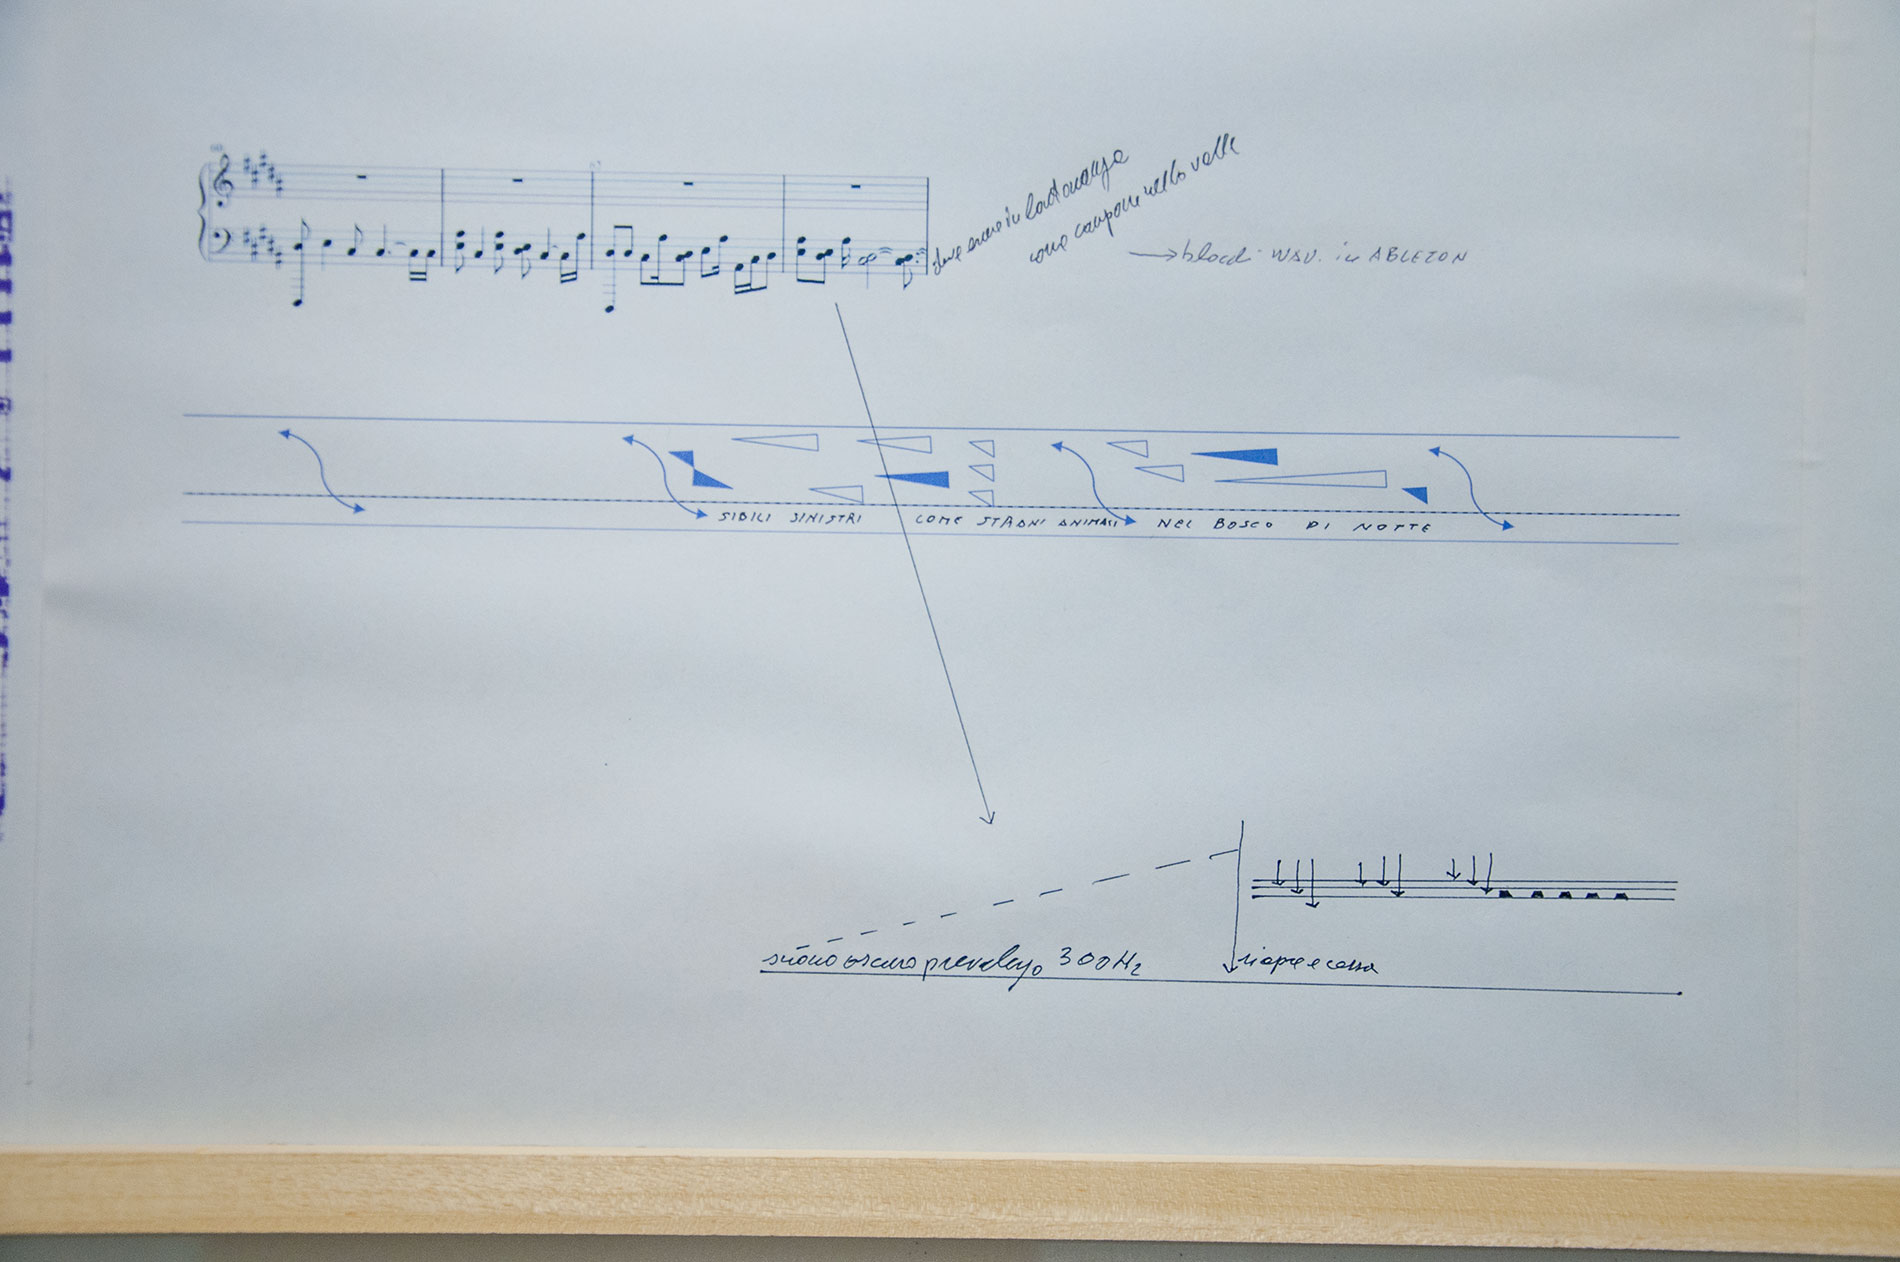 deve essere in lontananza
come campane nella valle
→ blocchi WAV. in ABLETON
SIBILI SINISTRI COME STRANI ANIMALI NEL BOSCO DI NOTTE
suono oscuro prevalenza 300 Hz
riapre e cassa